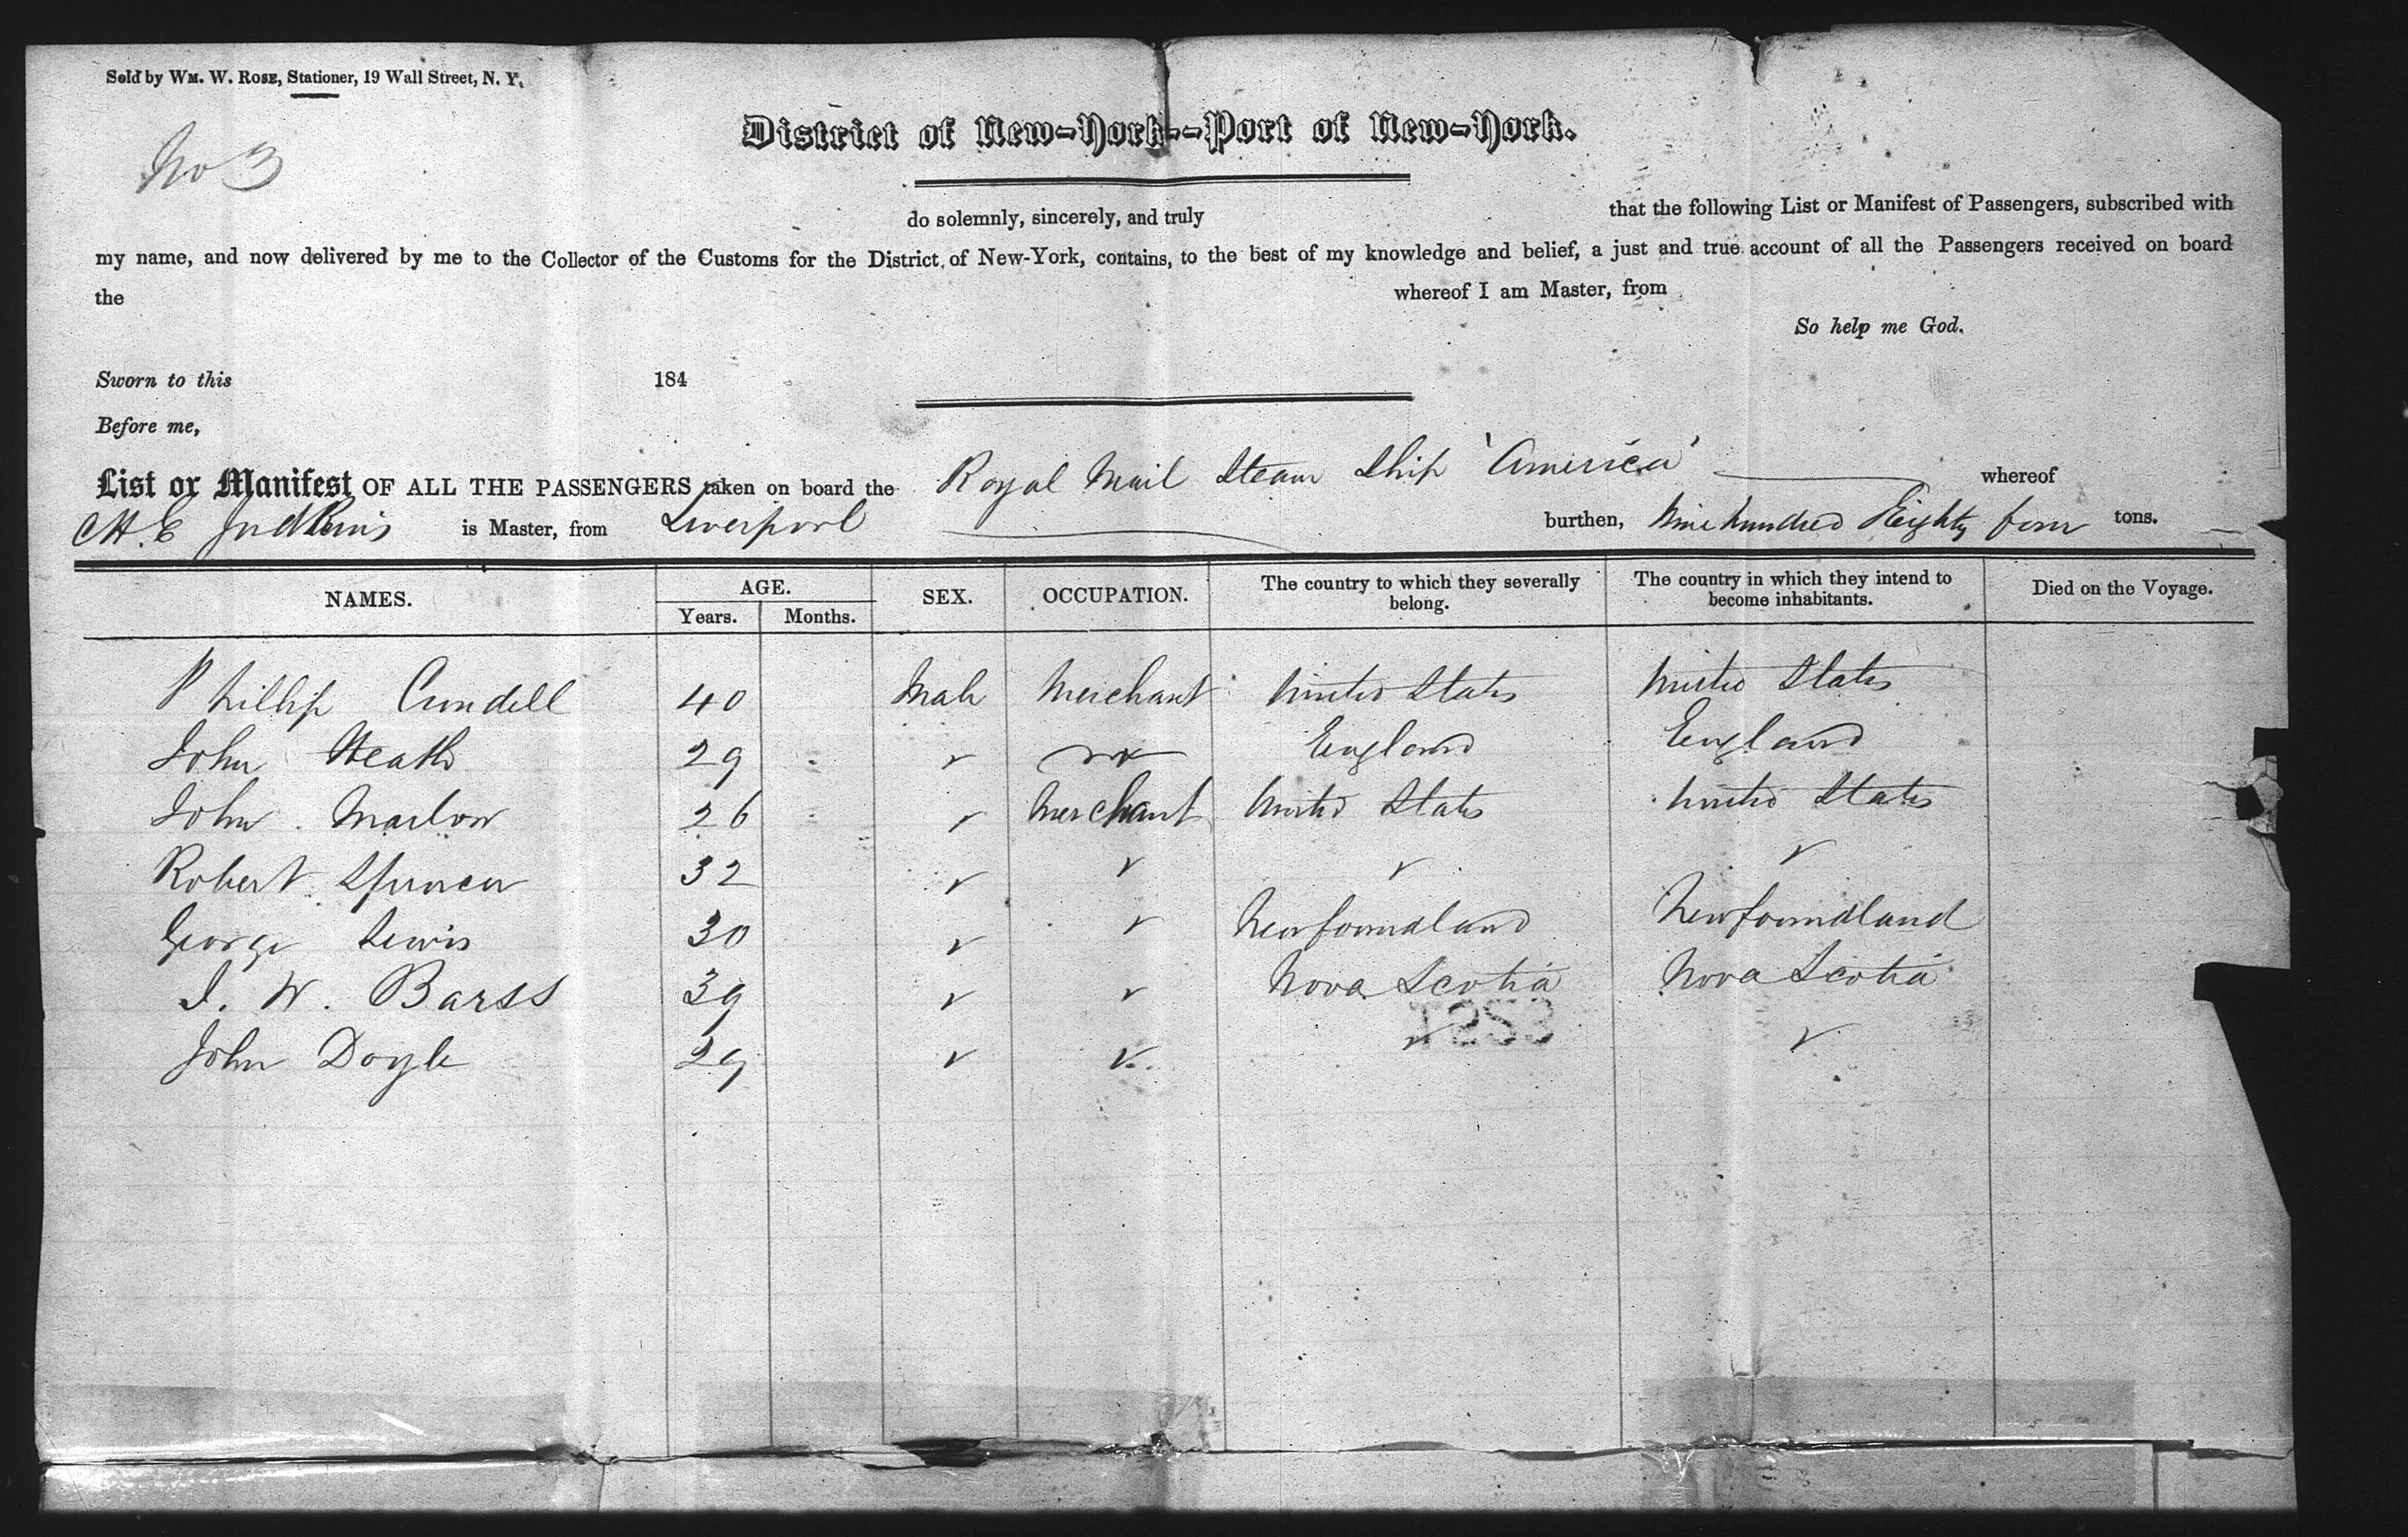 Sold by WM. W. ROSE, Stationer, 19 Wall Street, N. Y.
No 3
District of New-York--Port of New-York.
do solemnly, sincerely, and truly that the following List or Manifest of Passengers, subscribed with
my name, and now delivered by me to the Collector of the Customs for the District of New-York, contains, to the best of my knowledge and belief, a just and true account of all the Passengers received on board
the whereof I am Master, from
So help me God.
Sworn to this 184
Before me,
List or Manifest OF ALL THE PASSENGERS taken on board the Royal Mail Steam Ship 'America' whereof
C.H.E Judkins is Master, from Liverpool burthen, Nine hundred Eighty four tons.
NAMES. AGE. SEX. OCCUPATION. The country to which they severally belong. The country in which they intend to become inhabitants. Died on the Voyage.
Years. Months.
Phillip Cundell 40 Male Merchant United States United States
John Heath 29 England England
John Marlow 26 Merchant United States United States
Robert Spencer 32
George Lewis 30 Newfoundland Newfoundland
J. W. Barss 39 Nova Scotia Nova Scotia
John Doyle 29